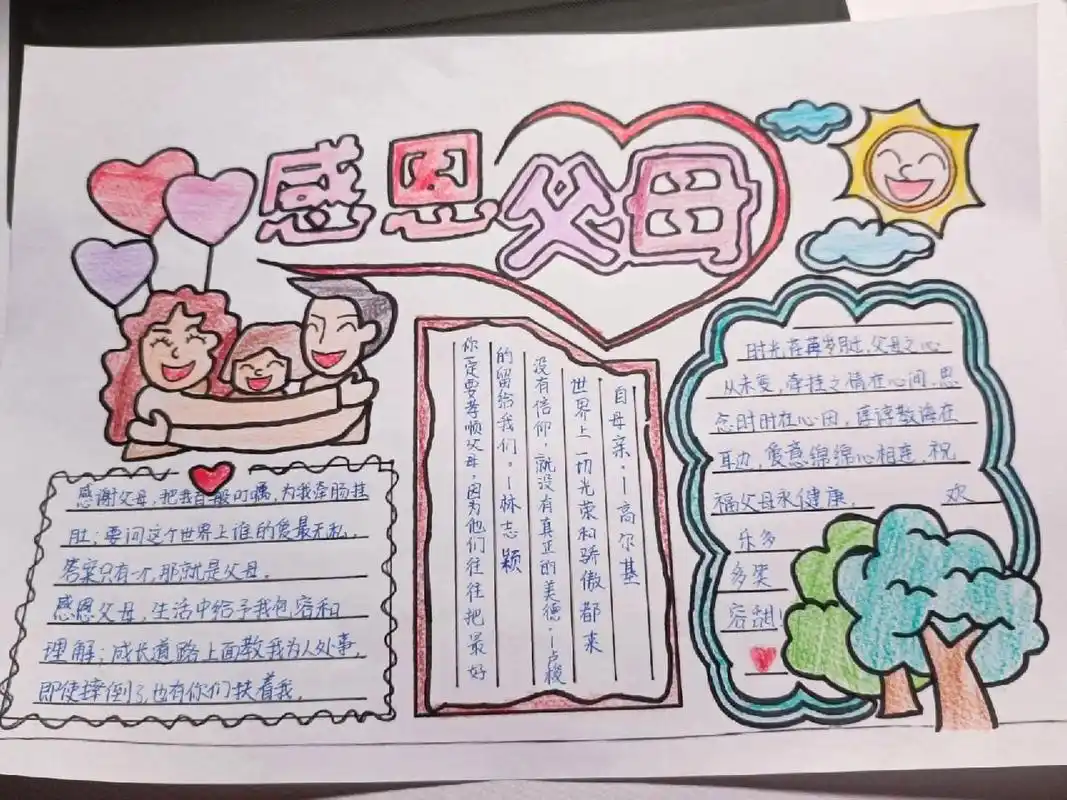 感恩父母
感谢父母,把我百般叮嘱,为我牵肠挂
肚;要问这个世界上谁的爱最无私,
答案只有一个,那就是父母。
感恩父母,生活中给予我包容和
理解;成长道路上面教我为人处事,
即使摔倒了,也有你们扶着我。
你一定要孝顺父母,因为他们往往把最好
的留给我们。—林志颖
没有信仰,就没有真正的美德。—卢梭
世界上一切光荣和骄傲都来
自母亲。—高尔基
时光苒岁,父母之心
从未变,牵挂之情在心间,思
念时时在心田,谆谆教诲在
耳边,爱意绵绵心相连,祝
福父母永健康 欢
乐多
多笑
容甜!